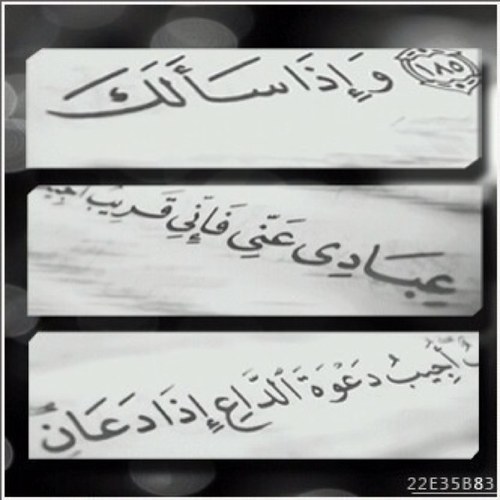 ١٨٥ وَإِذَا سَأَلَكَ
عِبَادِى عَنِّي فَإِنِّي قَرِيبٌ أُجِيبُ
أُجِيبُ دَعْوَةَ الدَّاعِ إِذَا دَعَانِ
22E35B83